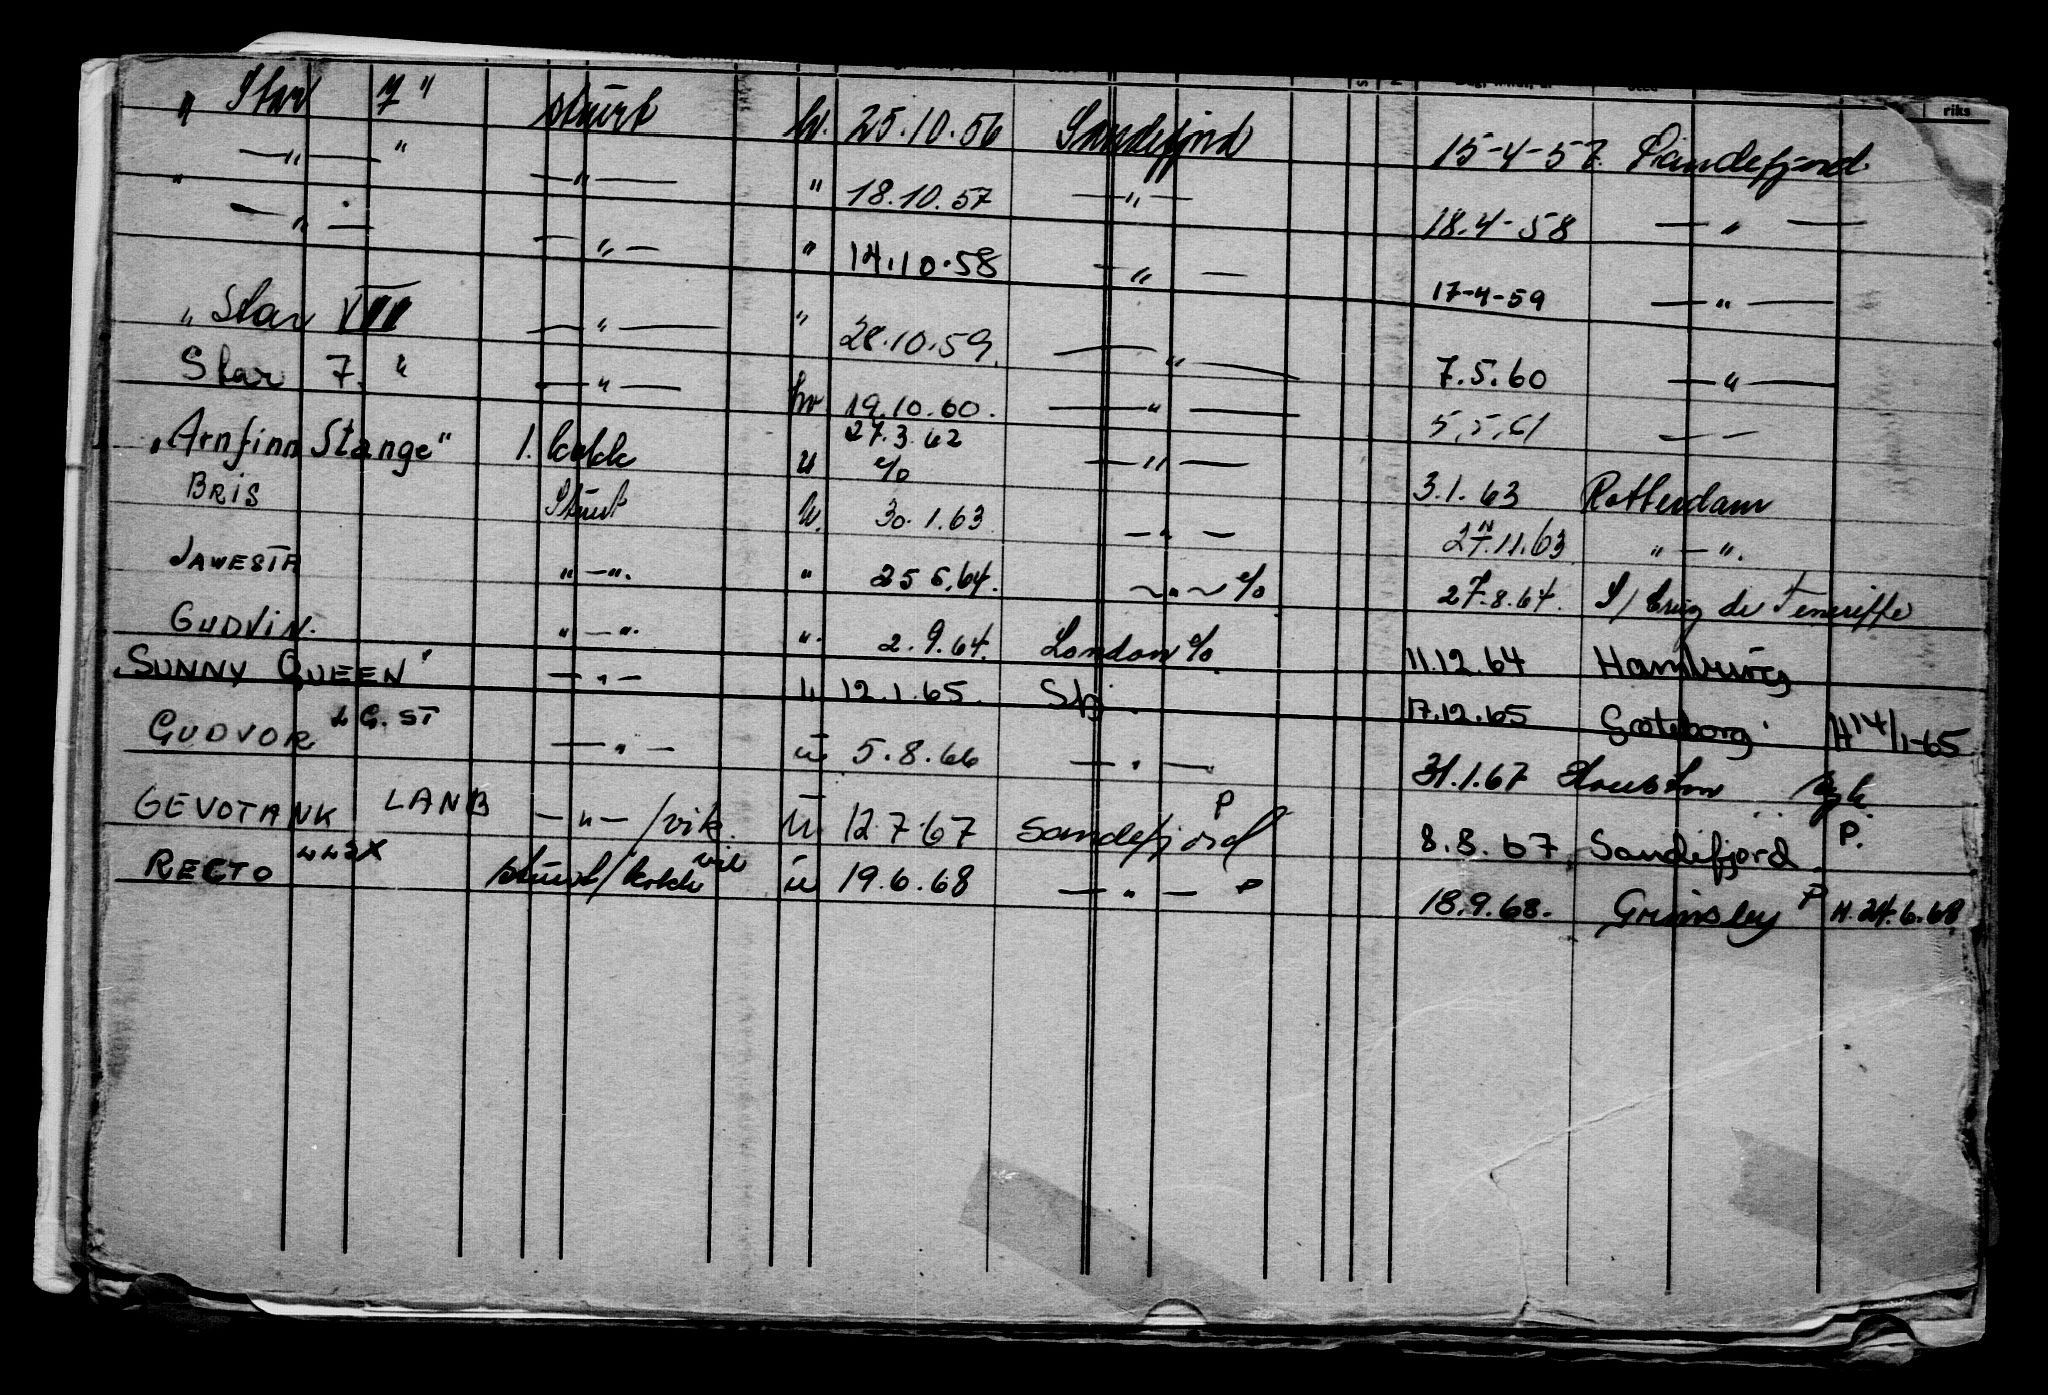 riks
„ Star 7 " stuert h. 25.10.56 Sandefjord 15-4-57 Sandefjord
— " — " — " — " 18.10.57 — " — 18.4-58 — " —
" — " — — " — " 14.10.58 — " — 17-4-59 — " —
„ Star VIII — " — " 28.10.59. — " — 7.5.60 — " —
Star 7. " — " — hv 19.10.60. — " — 5.5.61 — —
„Arnfinn Stange" 1. kokk u 27.3.62 % — " — 3.1.63 Rotterdam
BRIS Stuert h. 30.1.63 — " — 27.11.63 " — ".
JAWESTA " — ". " 25 6.64. — " — % 27.8.64. S/ Cruz de Teneriffe
GUDVIN. " — ". ". 2.9.64. London % 11.12.64 Hamburg
SUNNY QUEEN' — " — u 12.1.65. Sfj. 17.12.65 Gøteborg H 14/1-65
GUDVOR LGST — " — u 5.8.66 — " — 31.1.67 Houston
GEVOTANK LANB — " — /vik. u 12.7.67 Sandefjord P 8.8.67, Sandefjord P.
RECTO LLSX stuert/kokk vik u 19.6.68 — " — P 18.9.68. Grimsby P H. 24.6.68